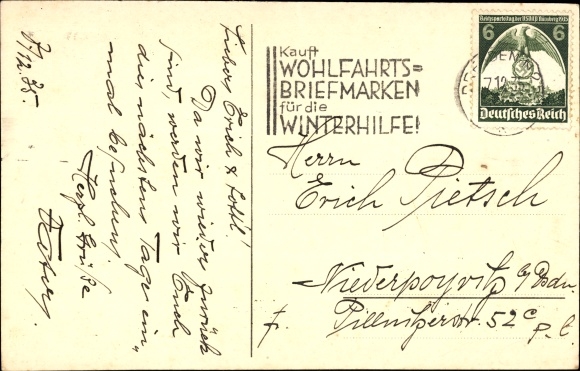 7/12.35.
Liebers Erich & Lottl!
Da wir wieder zurück
sind, werden wir Euch
die nächsten Tage ein-
mal besuchen.
Herzl. Grüße
Kauft
WOHLFAHRTS=
BRIEFMARKEN
für die
WINTERHILFE!
7.12.
Reichsparteitag der NSDAP Nürnberg 1935
6 6
Deutsches Reich
Herrn
Erich Pietsch
Niederpoyritz b/Dsdn.
Pillnitzerstr. 52c
p. l.